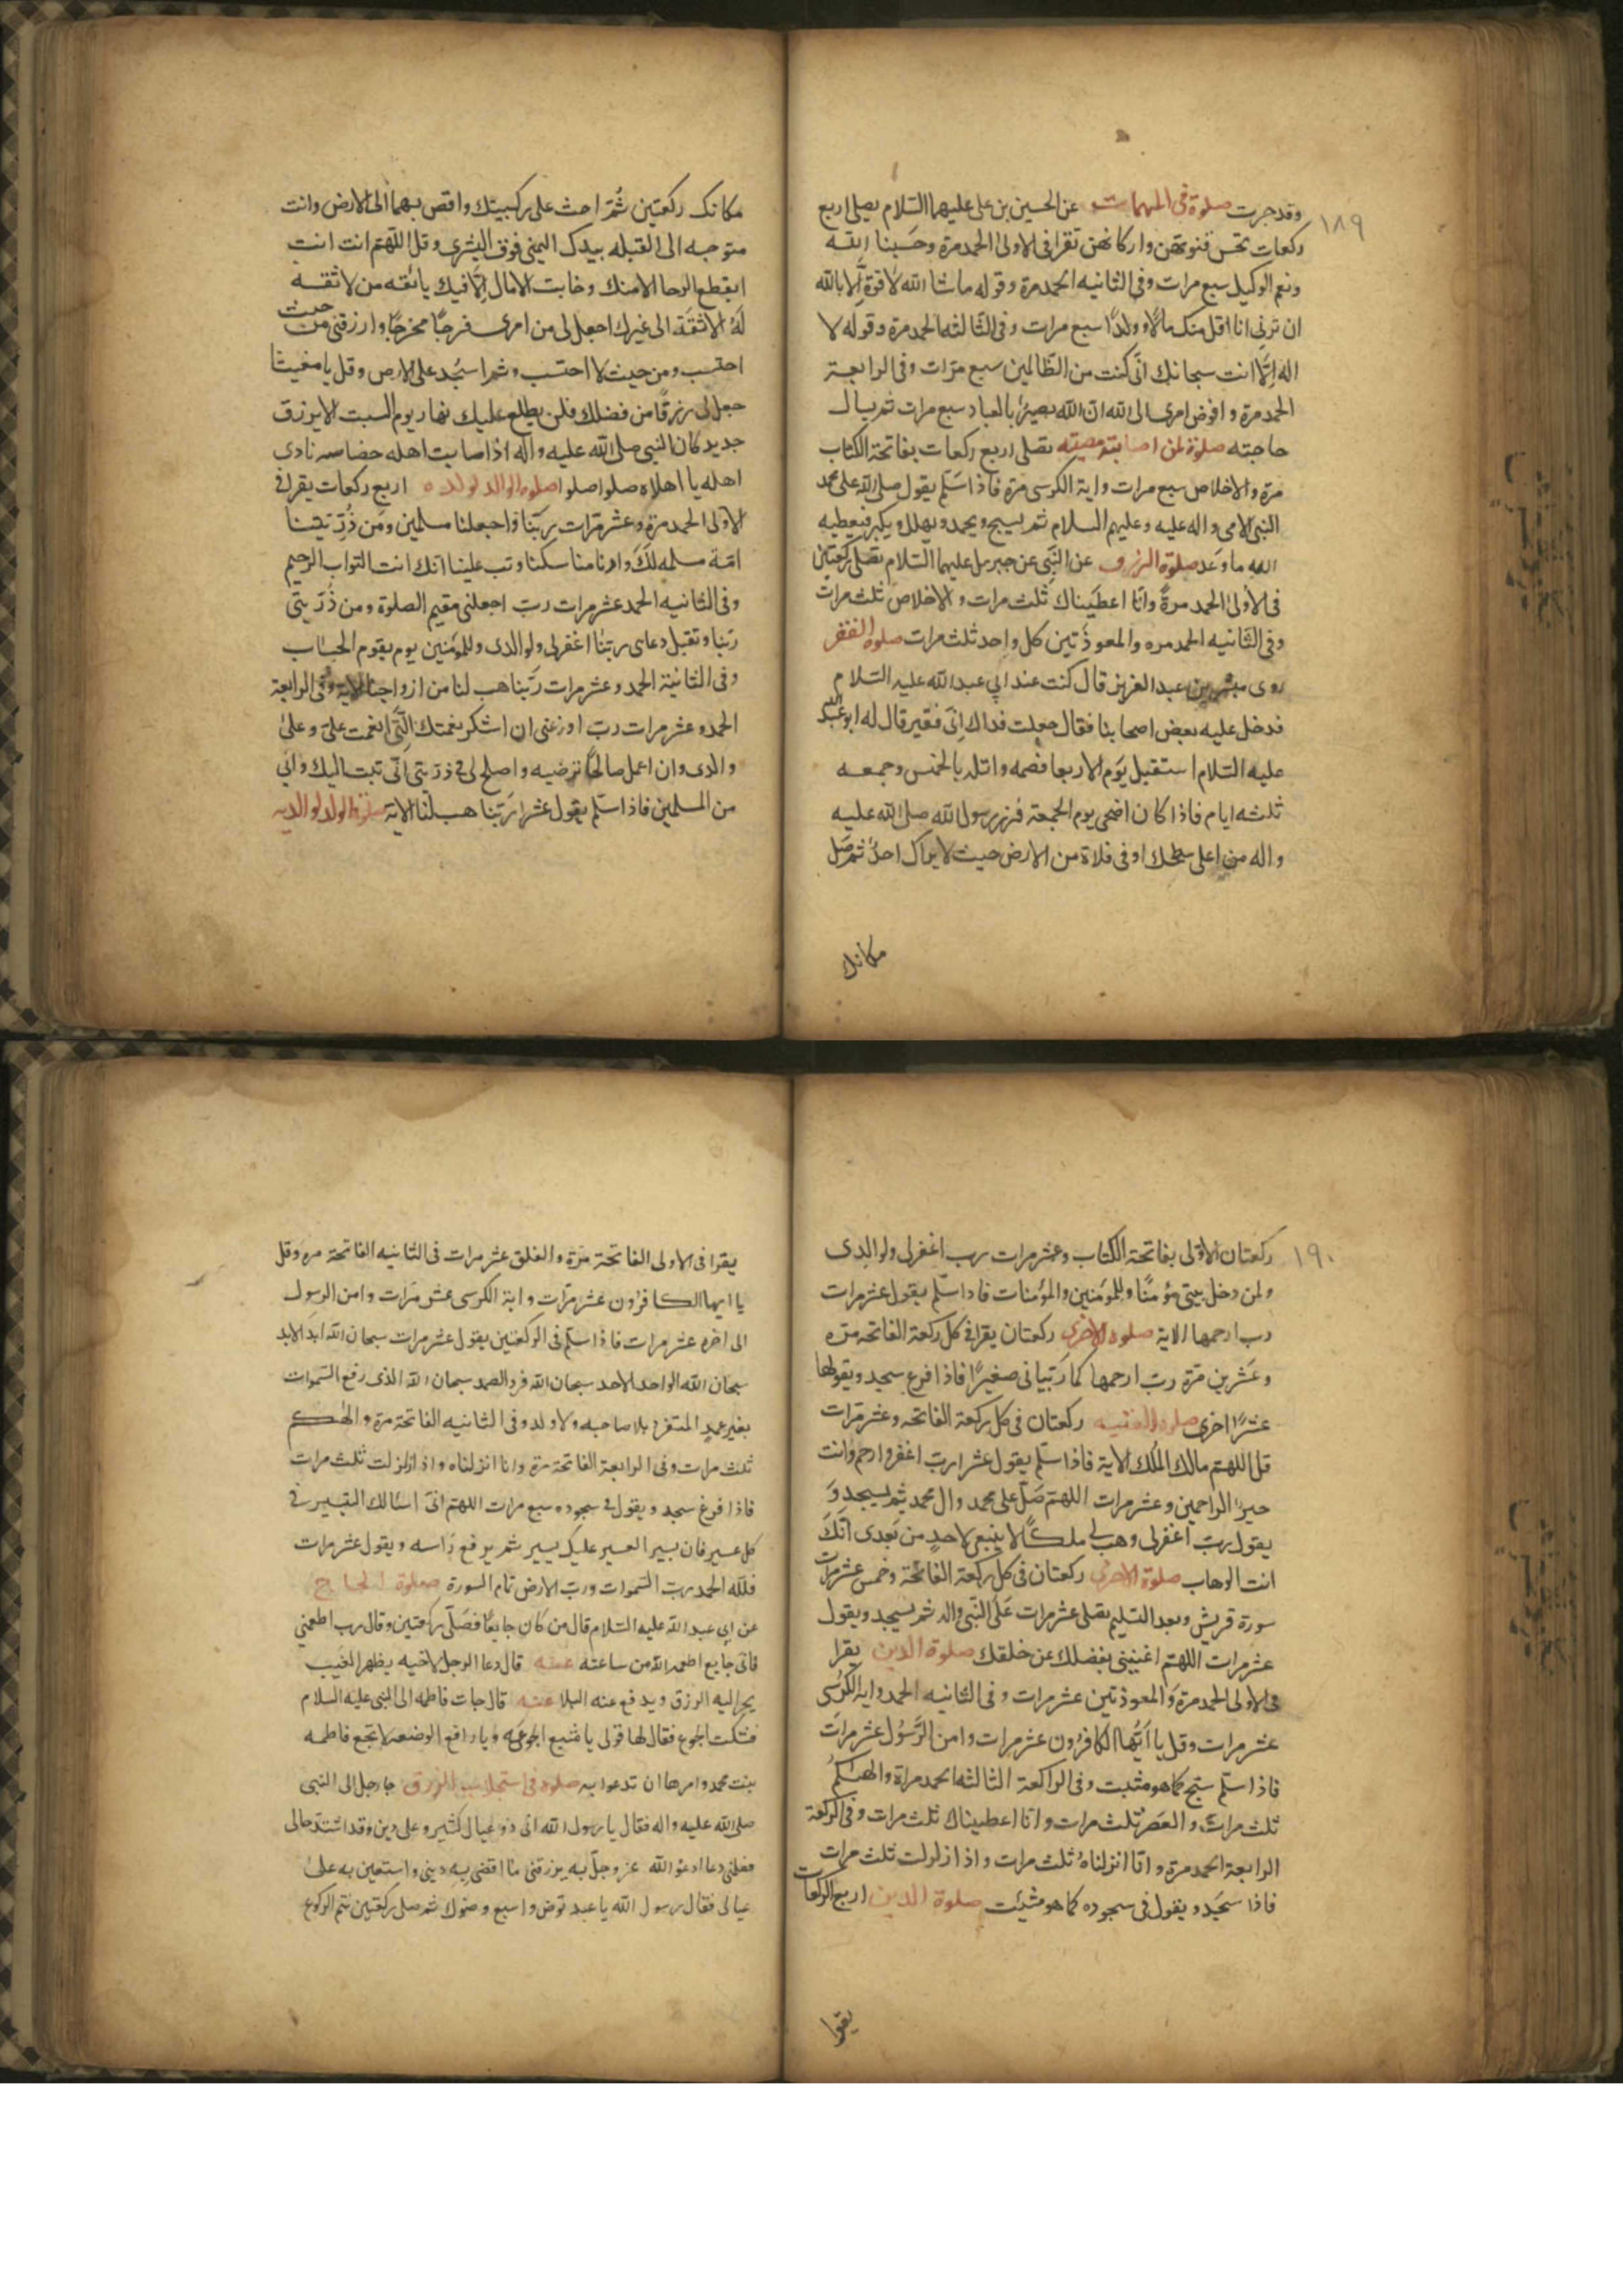 ١٨٩
وقد جربت صلوة فى المهمات عن الحسين بن على عليهما السلام يصلى اربع
ركعات تحسن قنوتهن واركانهن تقرا فى الاولى الحمد مرة وحسبنا الله
ونعم الوكيل سبع مرات وفى الثانيه الحمد مرة وقوله ماشا الله لا قوة إلا بالله
ان ترنى انا اقل منك مالا وولدا سبع مرات وفى الثالثه الحمد مرة وقوله لا
اله الا انت سبحانك انى كنت من الظالمين سبع مرات وفى الرابعة
الحمد مرة وافوض امرى الى الله ان الله بصير بالعباد سبع مرات ثم يسال
حاجته صلوة لمن اصابته مصيبته تصلى اربع ركعات بفاتحة الكتاب
مرة والاخلاص سبع مرات واية الكرسى مرة فاذا سلم يقول صلى الله على محمد
النبى الامى واله عليه وعليهم السلام ثم يسبح ويحمد ويهلل ويكبر فيعطيه
الله ما وعد صلوة الرزق عن النبى عن جبرئل عليهما السلام تصلى ركعتين
فى الاولى الحمد مرة وانا اعطيناك ثلث مرات والاخلاص ثلث مرات
وفى الثانيه الحمد مره والمعوذتين كل واحد ثلث مرات صلوة الفقر
روى مبشر بن عبد العزيز قال كنت عند ابى عبد الله عليه السلام
فدخل عليه بعض اصحابنا فقال جعلت فداك انى فقير قال له ابو عبد الله
عليه السلام استقبل يوم الاربعا فصمه واتله بالخمس وجمعه
ثلثه ايام فاذا كان اضحى يوم الجمعة فزر رسول الله صلى الله عليه
واله من اعلى سطحك او فى فلاة من الارض حيث لا يراك احد ثم صل
مكانك
مكانك ركعتين ثم احث على ركبيتك وافض بهما الى الارض وانت
متوجه الى القبله بيدك اليمنى فوق اليسرى وقل اللهم انت انت
انقطع الرجا الا منك وخابت الامال الا فيك يا ثقه من لا ثقه
له لا ثقة الى غيرك اجعل لى من امرى فرجا مخرجا وارزقنى من حيث
احتسب ومن حيث لا احتسب وثم اسجد على الارض وقل يا مغيث ا
جعل لى رزقا من فضلك فلن يطلع عليك نهار يوم السبت الا برزق
جديد كان النبى صلى الله عليه واله اذا اصابت اهله خصاصه نادى
اهله يا اهلاه صلوا صلوا صلوة الوالد لولده اربع ركعات يقرا فى
الاولى الحمد مرة وعشر مرات ربنا واجعلنا مسلمين ومن ذريتنا
امة مسلمه لك وارنا مناسكنا وتب علينا انك انت التواب الرحيم
وفى الثانيه الحمد عشر مرات رب اجعلنى مقيم الصلوة ومن ذريتى
ربنا وتقبل دعاى ربنا اغفر لى ولوالدى وللمؤمنين يوم يقوم الحساب
وفى الثانية الحمد وعشر مرات ربنا هب لنا من ازواجنا الاية وفى الرابعة
الحمد وعشر مرات رب اوزعنى ان اشكر نعمتك التى انعمت على وعلى
والدى وان اعمل صالحا ترضيه واصلح لى فى ذريتى انى تبت اليك وانى
من المسلمين فاذا سلم يقول عشرا ربنا هب لنا الاية صلوة الولد لوالديه
١٩٠
ركعتان الاولى بفاتحة الكتاب وعشر مرات رب اغفر لى ولوالدى
ولمن دخل بيتى مؤمنا وللمؤمنين والمؤمنات فاذا سلم يقول عشر مرات
رب ارحمهما الاية صلوة الاخرى ركعتان يقرا فى كل ركعة الفاتحه مره
وعشرين مرة رب ارحمهما كما ربيانى صغيرا فاذا فرغ سجد ويقولها
عشرا اخرى صلوة الغنيه ركعتان فى كل ركعة الفاتحه وعشر مرات
قل اللهم مالك الملك الاية فاذا سلم يقول عشرا رب اغفر وارحم وانت
خير الراحمين وعشر مرات اللهم صل على محمد وال محمد ثم يسجد و
يقول رب اغفر لى وهب لى ملكا لا ينبغى لاحد من بعدى انك
انت الوهاب صلوة الاخرى ركعتان فى كل ركعة الفاتحة وخمس عشر مرات
سورة قريش وبعد التسليم يصلى عشر مرات على النبى واله ثم يسجد ويقول
عشر مرات اللهم اغنينى بفضلك عن خلقك صلوة الدين يقرا
فى الاولى الحمد مرة والمعوذتين عشر مرات وفى الثانيه الحمد واية الكرسى
عشر مرات وقل يا ايها الكافرون عشر مرات وامن الرسول عشر مرات
فاذا سلم سبح كما هو مثبت وفى الراكعة الثالثه الحمد مراة والهىكم
ثلث مرات والعصر ثلث مرات وانا اعطيناك ثلث مرات وفى الركعة
الرابعة الحمد مرة وانا انزلناه ثلث مرات واذا زلزلت ثلث مرات
فاذا سجد ويقول فى سجوده كما هو مثبت صلوة الدين اربع الركعات
يقرا
يقرا فى الاولى الفاتحة مرة والفلق عشر مرات فى الثانيه الفاتحة مره وقل
يا ايها الكافرون عشر مرات واية الكرسى عشر مرات وامن الرسول
الى اخره عشر مرات فاذا سلم فى الركعتين يقول عشر مرات سبحان الله ابد الابد
سبحان الله الواحد الاحد سبحان الله فرد الصمد سبحان الله الذى رفع السموات
بغير عمد المتفرد بلا صاحبه ولا ولد وفى الثانيه الفاتحة مرة والهىكم
ثلث مرات وفى الرابعة الفاتحة مرة وانا انزلناه واذا زلزلت ثلث مرات
فاذا فرغ سجد ويقول فى سجوده سبع مرات اللهم انى اسالك التيسير فى
كل عسير فان تيسير العسير عليك يسير ثم يرفع راسه ويقول عشر مرات
فلله الحمد رب السموات ورب الارض تمام السورة صلوة الجايع
عن ابى عبد الله عليه السلام قال من كان جايعا فصلى ركعتين وقال رب اطعمنى
فانى جايع اطعمه الله من ساعته عنه قال دعا الرجل لاخيه بظهر الغيب
يجر اليه الرزق ويدفع عنه البلا عنه قال جات فاطمه الى النبى عليه السلام
فشكت الجوع فقال لها قولى يا مشبع الجوعه ويا رافع الوضعه لا تجع فاطمه
بنت محمد وامرها ان تدعوا به صلوة فى استجلاب الرزق جا رجل الى النبى
صلى الله عليه واله فقال يا رسول الله انى ذو عيال كثير وعلى دين وقد اشتد حالى
فعلمنى دعا ادعو الله عز وجل به يرزقنى ما اقضى به دينى واستعين به على
عيالى فقال رسول الله يا عبد توض واسبغ وضوك ثم صلى ركعتين تتم الركوع